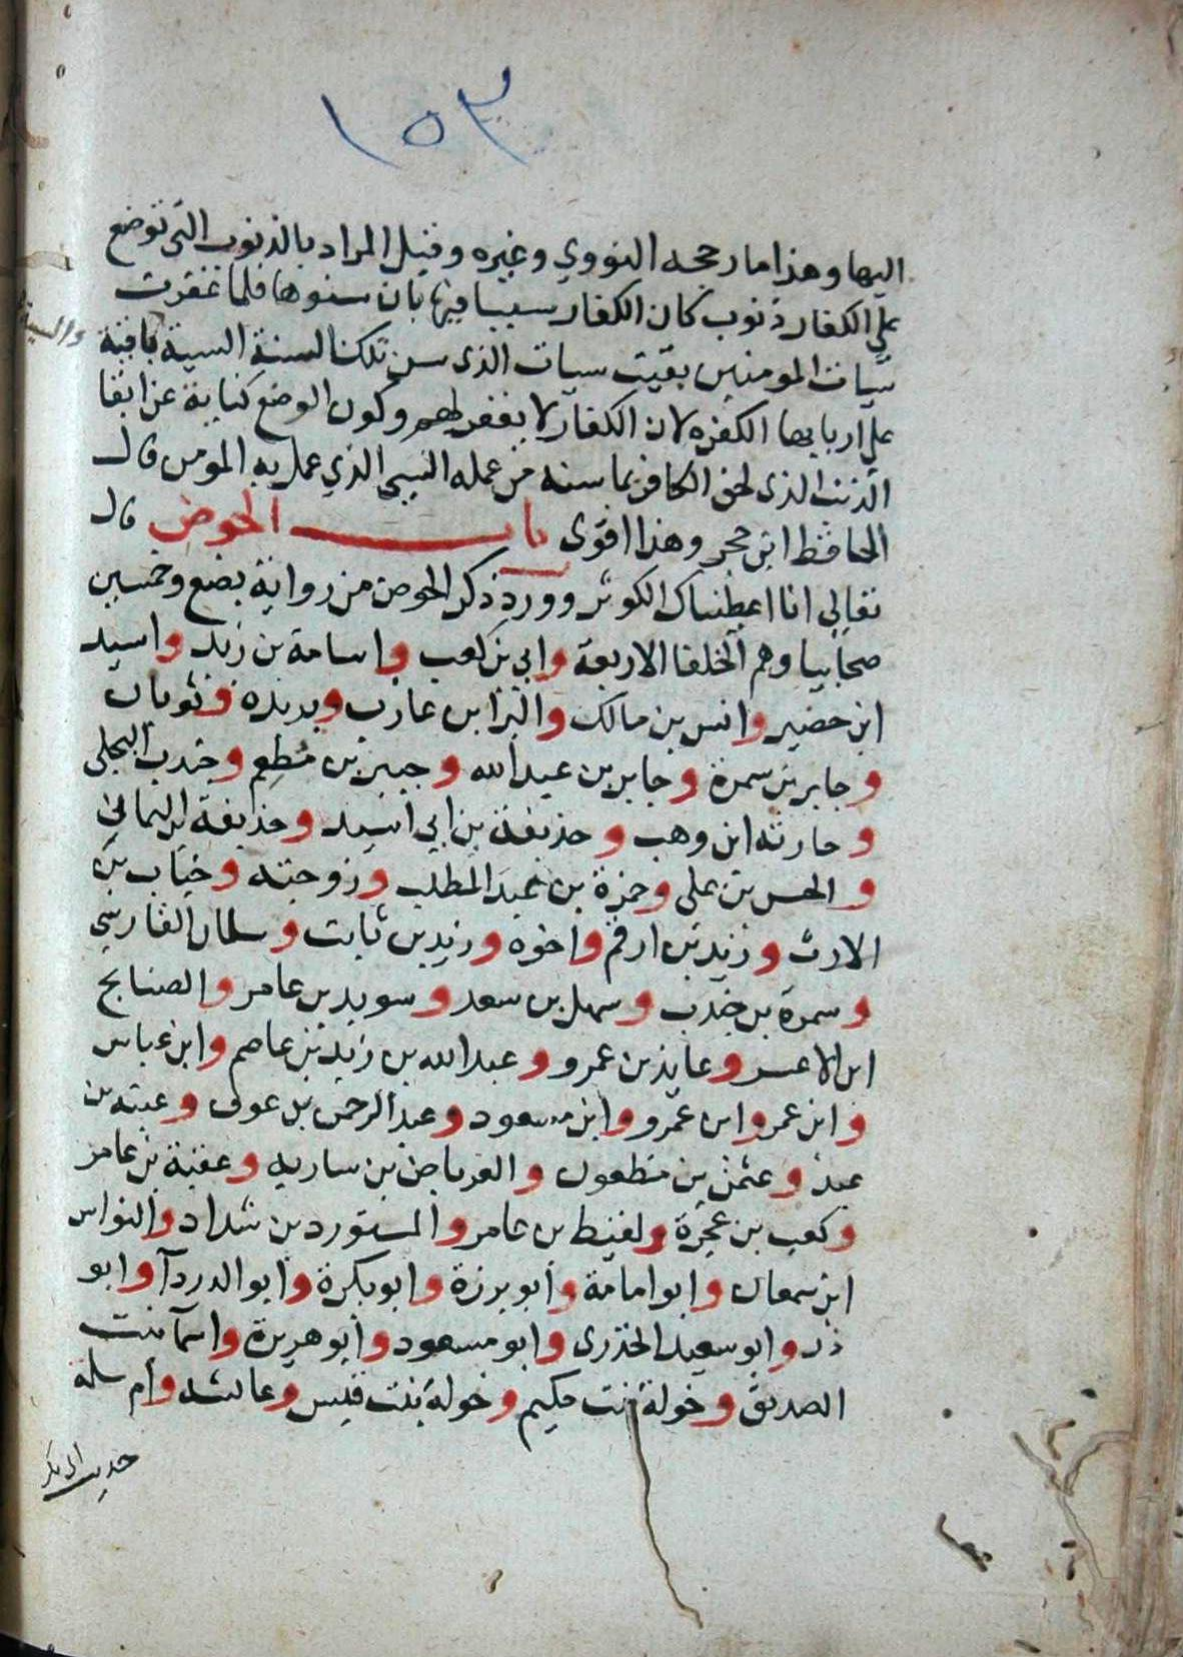 ١٥٣
اليها وهذا ما رجحه النووي وغيره وقيل المراد بالذنوب التي توضع
على الكفار ذنوب كان الكفار سببا فيها بان سنوها فلما غفرت
سيات المومنين بقيت سيات الذي سن تلك السنة السية باقية
على اربابها الكفره لان الكفار لا يغفر لهم وكون الوضع كناية عن ابقا
الذنب الذي لحق الكافر بما سنه من عمله السيى الذي عمل به المومن قال
الحافظ ابن حجر وهذا اقوى باب الحوض قال
تعالى انا اعطيناك الكوثر وورد ذكر الحوض من رواية بضع وخمسين
صحابيا وهم الخلفا الاربعة وابي بن كعب واسامة بن زيد واسيد
ابن حضير وانس بن مالك والبرا بن عازب وبريدة وثوبان
وجابر بن سمرة وجابر بن عبد الله وجبير بن مطعم وجندب البجلي
وحارثه ابن وهب وحذيفة بن ابي اسيد وحذيفة بن اليماني
والحسن بن على وحمزة بن عبد المطلب وزوجته وخباب بن
الارت وزيد بن ارقم واخوه وزيد بن ثابت وسلمان الفارسي
وسمرة بن جندب وسهل بن سعد وسويد بن عامر والصنابح
ابن الاعسر وعايذ بن عمرو وعبد الله بن زيد بن عاصم وابن عباس
وابن عمر وابن عمرو وابن مسعود وعبد الرحمن بن عوف وعبته بن
عبد وعثمن بن مظعون والعرباض بن ساريه وعقبة بن عامر
وكعب بن عجرة ولقيط بن عامر والمستورد بن شداد والنواس
ابن سمعان وابو امامة وابو برزة وابو بكرة وابو الدردآ وابو
ذر وابو سعيد الخذري وابو مسعود وابو هريرة واسآ بنت
الصديق وخولة بنت حكيم وخولة بنت قيس وعائشه وام سلمة
حديث ابى بكر